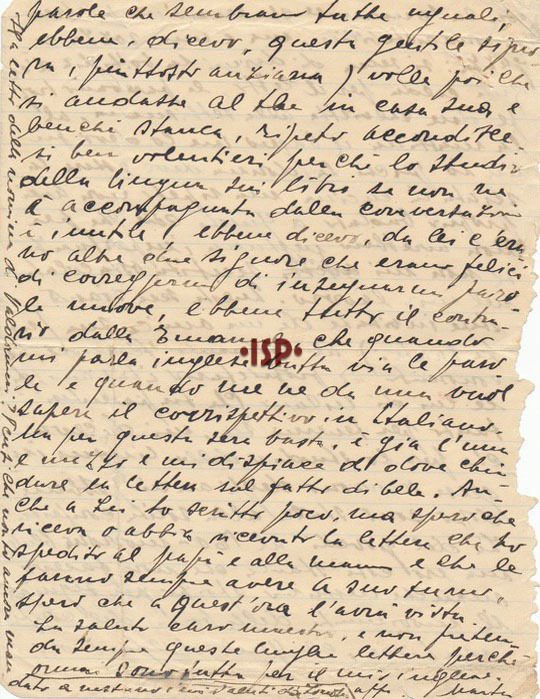 parole che sembrano tutte uguali,
ebbene, dicevo, questa gentile signo
ra, piuttosto anziana) volle poi che
si andasse al the in casa sua e
benché stanca, ripeto accondisce-
si ben volentieri perché lo studio
della lingua sui libri se non ne
è accompagnata dalla conversazione
è inutile ebbene dicevo, da lei c'era
no altre due signore che erano felici
di correggermi di insegnarmi paro
le nuove, ebbene tutto il contra-
rio dalla che quando
mi parla inglese butta via le paro
le e quando me ne da una vuol
sapere il corrispettivo in Italiano.
Ma per questa sera basta, è già l'una
e mezzo e mi dispiace di dover chiu
dere la lettera sul fatto di bele. An-
che a Lei ho scritto poco, ma spero che
riceva o abbia ricevuto la lettera che ho
spedito al papà e alla mamma e che le
faranno sempre avere a suo turno.
spero che a quest'ora l'avrà vista.
La saluto caro maestro, e non preten
da sempre queste lunghe lettere perché
ormai sono tutta per il mio inglese.
dato a nessuno i miei saluti
Ha letto della nomina di ? Senti che non ho ancora man
·ISP·